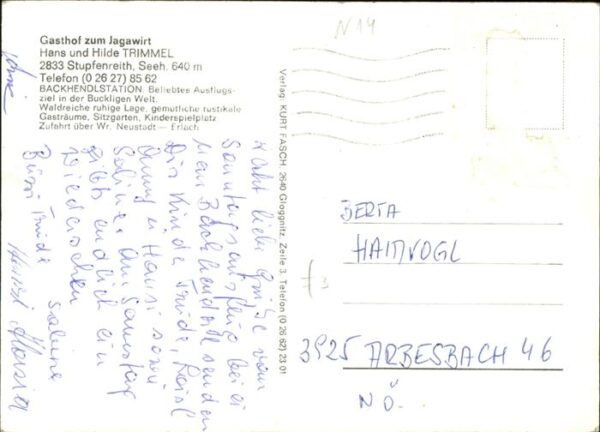 N14
Gasthof zum Jagawirt
Hans und Hilde TRIMMEL
2833 Stupfenreith, Seeh. 640 m
Telefon (0 26 27) 85 62
BACKHENDLSTATION. Beliebtes Ausflugs-
ziel in der Buckligen Welt.
Waldreiche ruhige Lage, gemütliche rustikale
Gasträume, Sitzgarten, Kinderspielplatz
Zufahrt über Wr. Neustadt — Erlach
Verlag: KURT FASCH, 2640 Gloggnitz, Zeile 3, Telefon (0 26 62) 23 01
liebe Grüße vom
Sonntagsausflug bei
senden
Dir Kinder Trude,
Hansi sowie
Sabine. Am Samstag
gibts endlich ein
Wiedersehen
Bussi Trude
Sabine
Hansi
BERTA
HAIMVOGL
3925 ARBESBACH 46
NÖ.